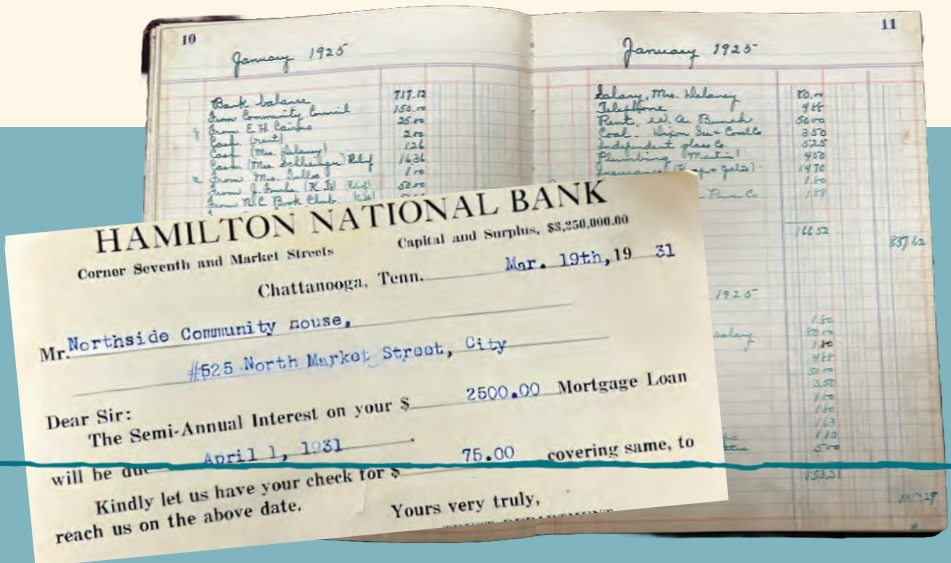 10
January 1925
Bank balance 717.12
From Community Council 150.00
From E H Cairns 25.00
Cash (rent) 2.00
Cash (Mrs. Delaney) 1.26
Cash (Mrs. Relief 16.36
From Mrs. 1.00
From J. (K. Js) 50.00
From N.C. Book Club
11
January 1925
Salary, Mrs. Delaney 80.00
Telephone 4.88
Rent, W. A. Bunch 50.00
Coal. Dixon Ice & Coal Co 3.50
Independent glass Co. 5.25
Plumbing (Martin) 4.50
Insurance 14.70
1.80
Co. 1.88
166.52
837.62
HAMILTON NATIONAL BANK
Corner Seventh and Market Streets
Capital and Surplus, $3,250,000.00
Chattanooga, Tenn. Mar. 19th, 19 31
Mr. Northside Community House,
#525 North Market Street, City
Dear Sir:
The Semi-Annual Interest on your $ 2500.00 Mortgage Loan
will be due April 1, 1931.
Kindly let us have your check for $ 75.00 covering same, to
reach us on the above date.
Yours very truly,
1925
1.80
salary 80.00
1.80
4.88
50.00
3.50
1.00
1.80
1.63
1.10
5.00
153.31